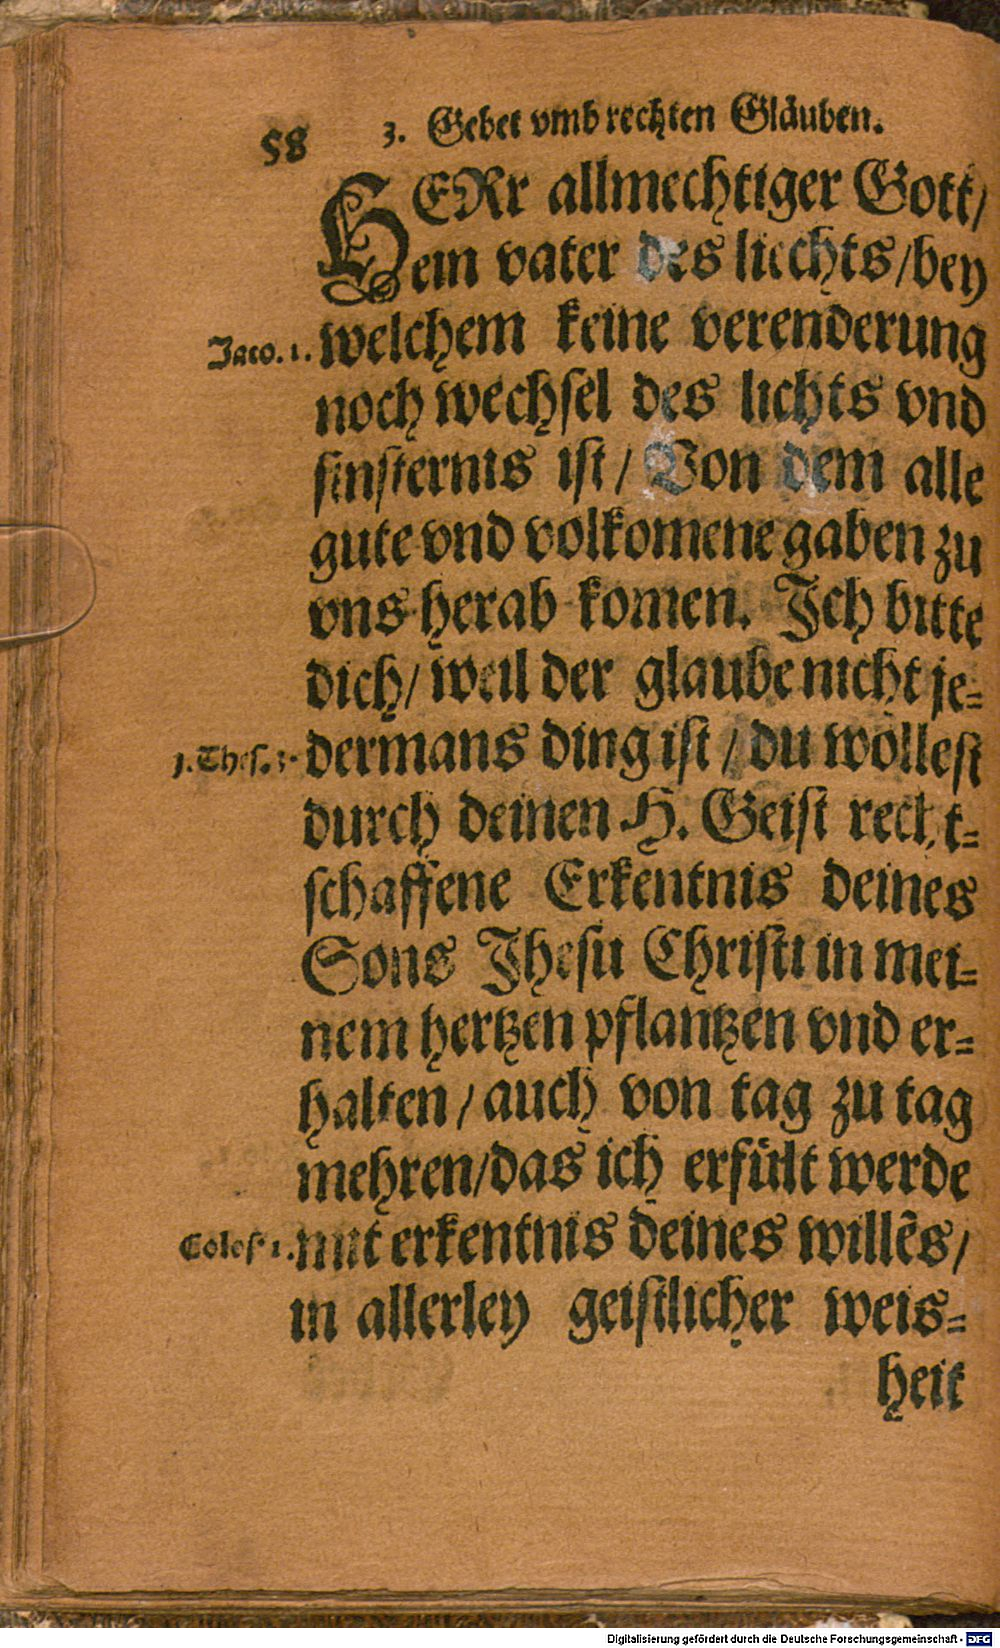 58 3. Gebet vmb rechten Glauben.
HERr allmechtiger Gott/
ein vater des liechts/bey
Jaco. 1. welchem keine verenderung
noch wechsel des lichts vnd
finsternis ist/ Von dem alle
gute vnd volkomene gaben zu
vns herab komen. Ich bitte
dich/ weil der glaube nicht je-
1. Thes. 3. dermans ding ist/ du wöllest
durch deinen H. Geist recht-
schaffene Erkentnis deines
Sons Jhesu Christi in mei-
nem hertzen pflantzen vnd er-
halten/ auch von tag zu tag
mehren/das ich erfült werde
Colos 1. mit erkentnis deines willẽs/
in allerley geistlicher weis-
heit
Digitalisierung gefördert durch die Deutsche Forschungsgemeinschaft - DFG